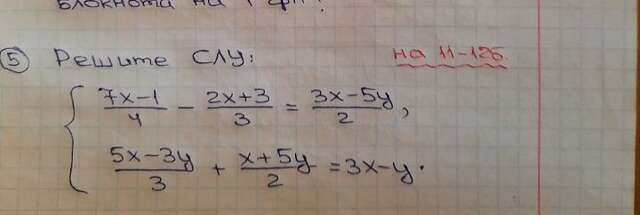 блокнота на 1 грн?
5 Решите СЛУ: на 11-12б.
{ (7x-1)/4 - (2x+3)/3 = (3x-5y)/2,
(5x-3y)/3 + (x+5y)/2 = 3x-y.